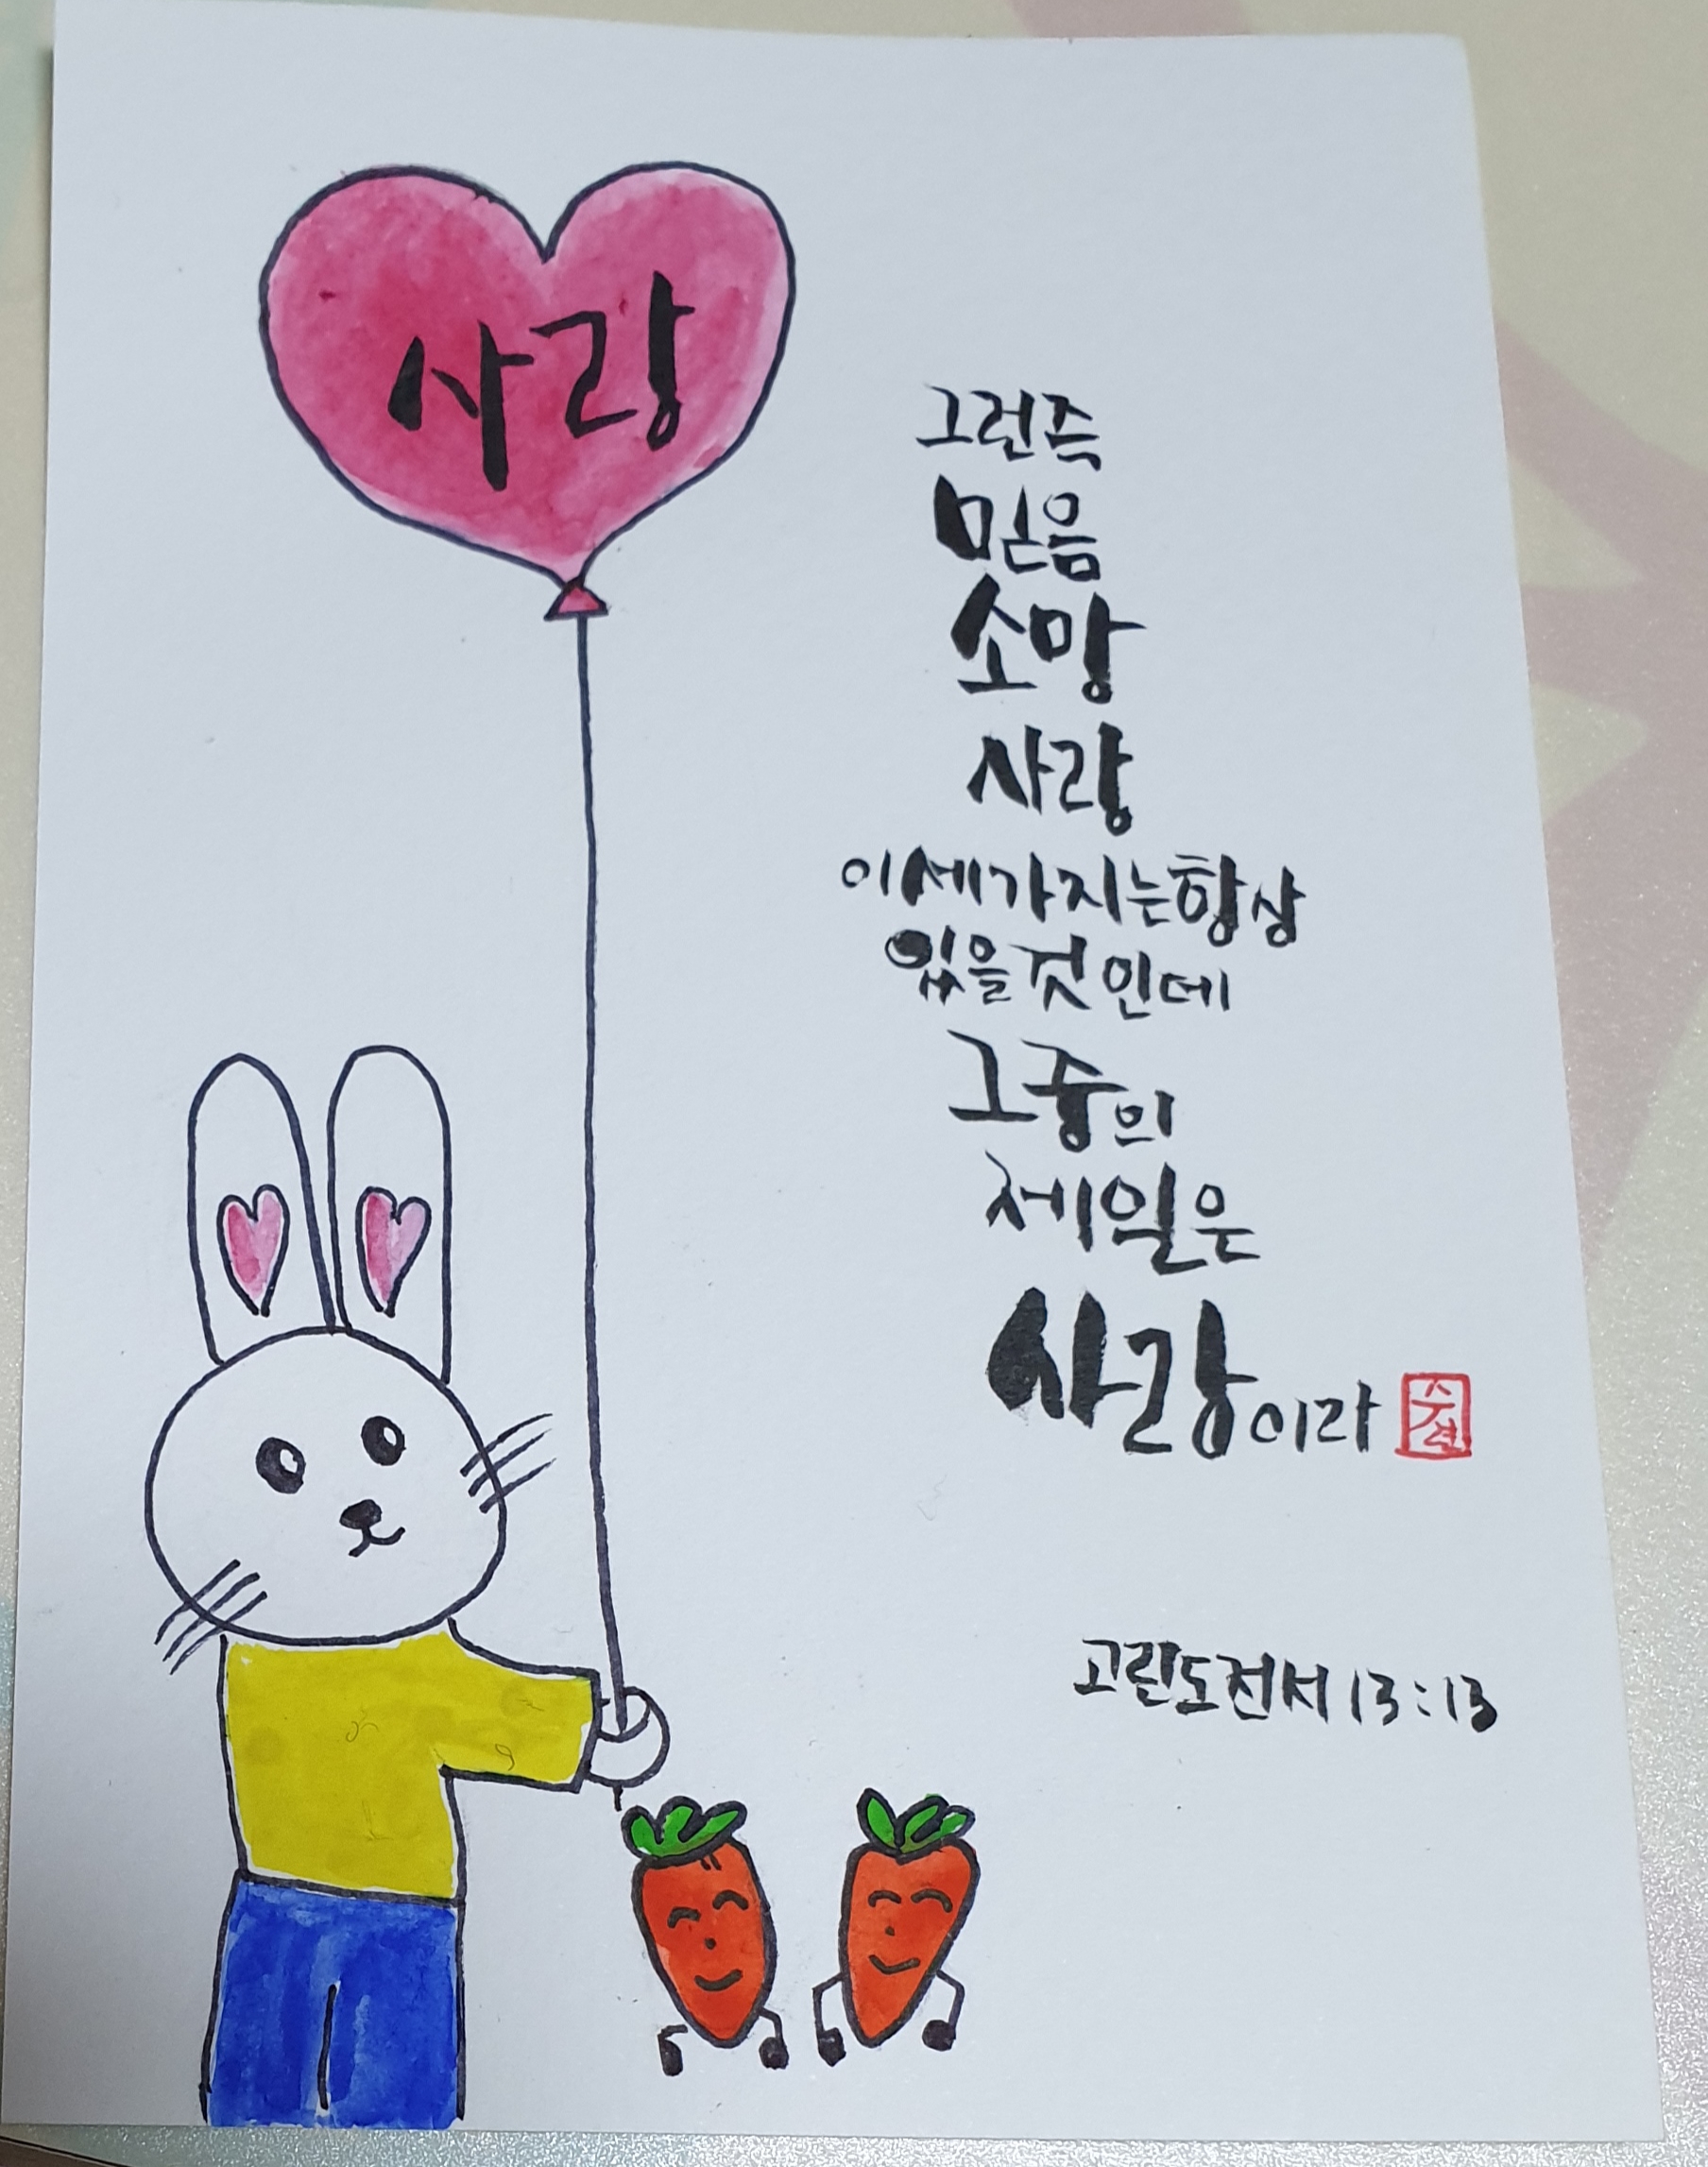 사랑
그런즉
믿음
소망
사랑
이 세가지는 항상
있을 것 인데
그중의
제일은
사랑이라
고린도전서 13:13